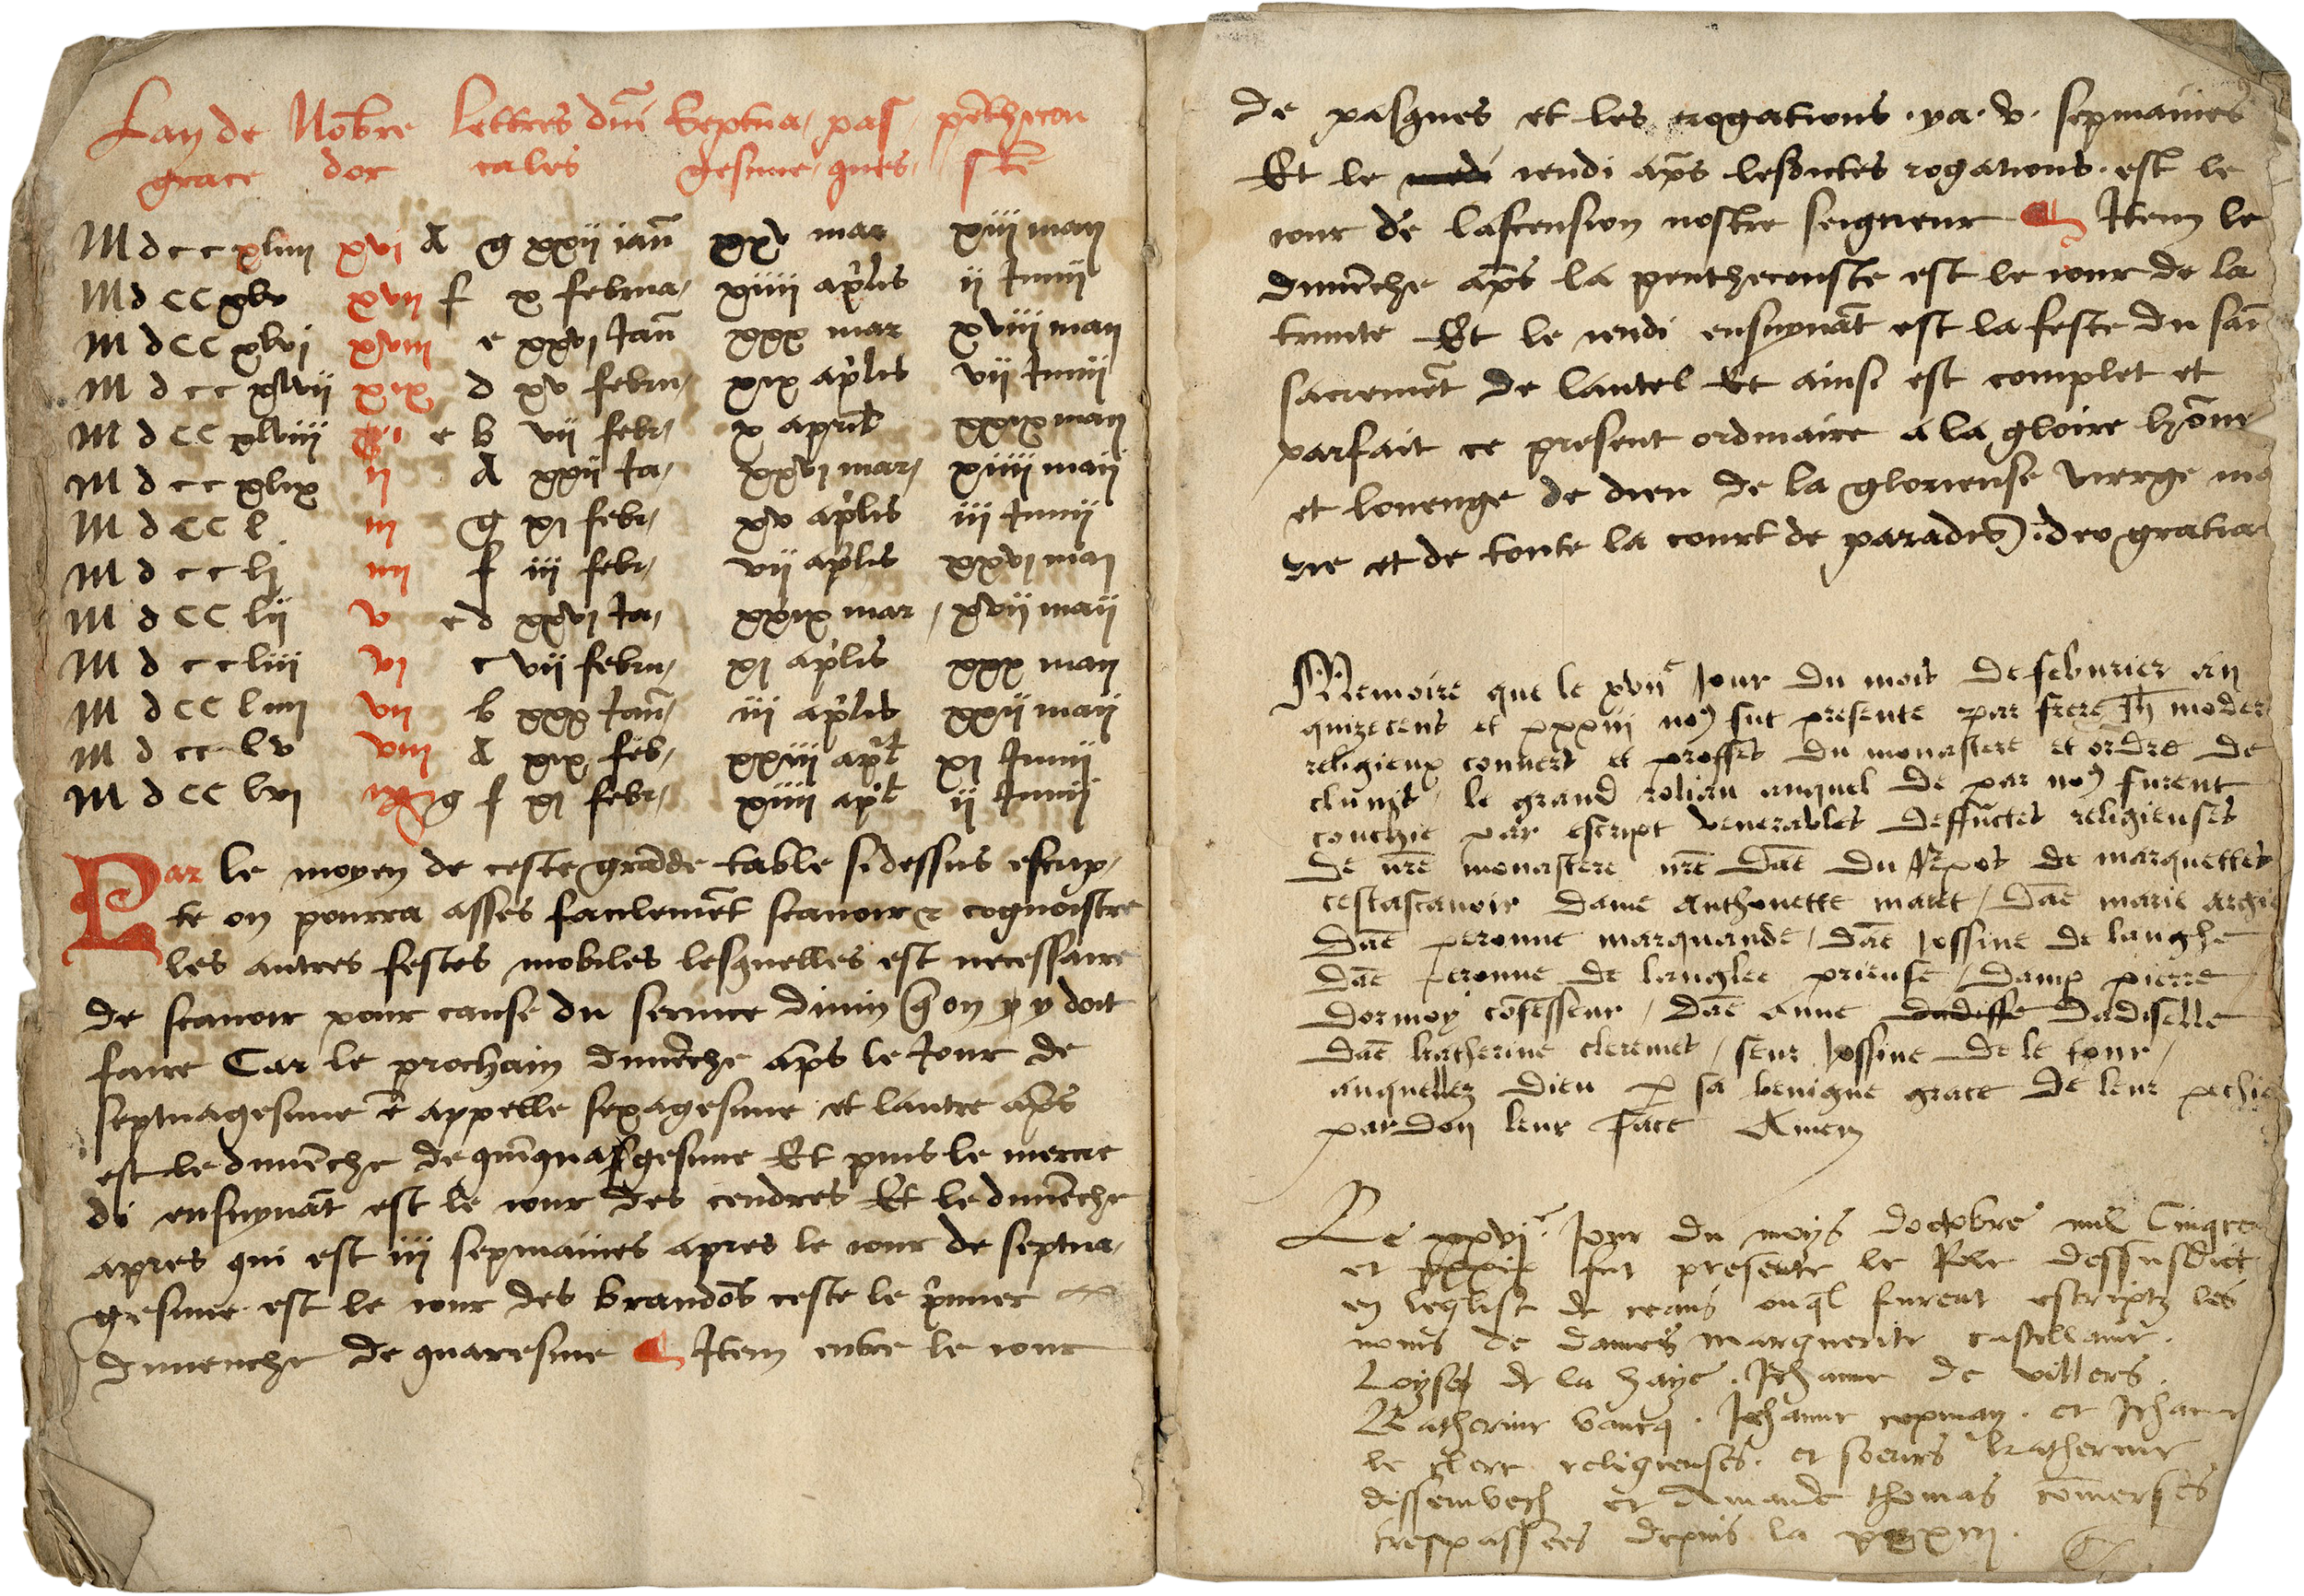 Lan de Nōbre lettres dūi Septua, pas, pēthecou
grace dor cales gesime, ques, stē
M d c c xliiii xvi A g xxii iaū xxv mar xiii maij
M d CC xlv xvii f x februa, xiiii ap̄lis ii Junij
M d CC xlvi xviii e xxvi Jaū xxx mar xviii maij
M d c c xlvii xix d xv febru, xix ap̄lis vii Junij
M d CC xlviii i c b vii febr, x aprīl xxix maij
M d c c xlix ii A xxii Ja, xxvi mar, xiiii maij
M d CC l iii g xi febr, xv ap̄lis iii Junij
M d c c li iiii f iii febr, vii aplis xxvi maj
M d CC lii v e d xxvi Ja, xxix mar, xvii maij
M d c c liii vi c vii febru, xi ap̄lis xxx maij
M d CC liiii vii b xxx Jaū, iii ap̄lis xxii maij
M d cc lv viii A xix feb, xxiii ap̄l xi Junij
M d CC lvi g f xi febr, xiiii ap̄l ii Junij
Par le moyen de ceste grādde table sidessus escrip,
te on pourra asses facilemēt scauoir & cognoistre
les autres festes mobiles lesquelles est necessaire
de scauoir pour cause du seruice diuin q̄ on y y doit
faire Car le prochain dimēche ap̄s le Jour de
septuagesime ē appelle sexagesime et lautre ap̄s
est le dimēche de quīquagesime Et puis le mercre
di ensuyuāt est le iour des cendres Et le dimēche
apres qui est iij sepmaines apres le iour de septua,
gesime est le iour des brandōs ceste le p̄mier
dimenche de quaresme ¶ Item entre le iour
de pasques et les rogations . ya . v . sepmaines
Et le iendi ap̄s lesdictes rogations . est le
iour de lascension nostre seigneur ¶ Item le
dimēche ap̄s la penthecouste est le iour de la
trinite Et le iendi ensuyuāt est la feste du saī
sacremēt de lautel Et ainsi est complet et
parfait ce present ordinaire a la gloire hōnr
et louenge de dieu de la glorieuse vierge ma
rie et de toute la court de paradis . deo gratia
Memoire que le xviie Jour du mois de feburier an
quīzecens et xxxiii no9 fut presente par frere Jh̄ moder
religieux conuert et proffes du monastere et ordre de
clunis, le grand rolian auquel de par no9 furent
couchie par escript venerables deffūctes religieuses
de nr̄e monastere nr̄e Dāe du Rpos de marquettes
cestascauoir dame Anthonette maret / Dāe marie
Dāe peronne marquande / dāe Jossine de langhe
dāe peronne de langlee prieuse / damp pierre
dormoy cōfesseur / dāe Anne dadiselle
dāe katherine cleremes / seur Jossine de le tour /
auquelles dieu p sa benigne grace de leur pechie
pardon leur face Amen
Le xxvie Jour du moys doctobre mil Cinqcen
et xxxix fut presente le Role dessusdict
en leglise de ceans ouql̄ furent escriptz les
noms de dames marguerite castillanr .
Loyse de la haye . Jehanne de villers .
Katherine Jehanne et Jehanne
le clerc religieuses . et soeurs katherine
et Amande thomas cōuerses
trespassees depuis la xxxiii .